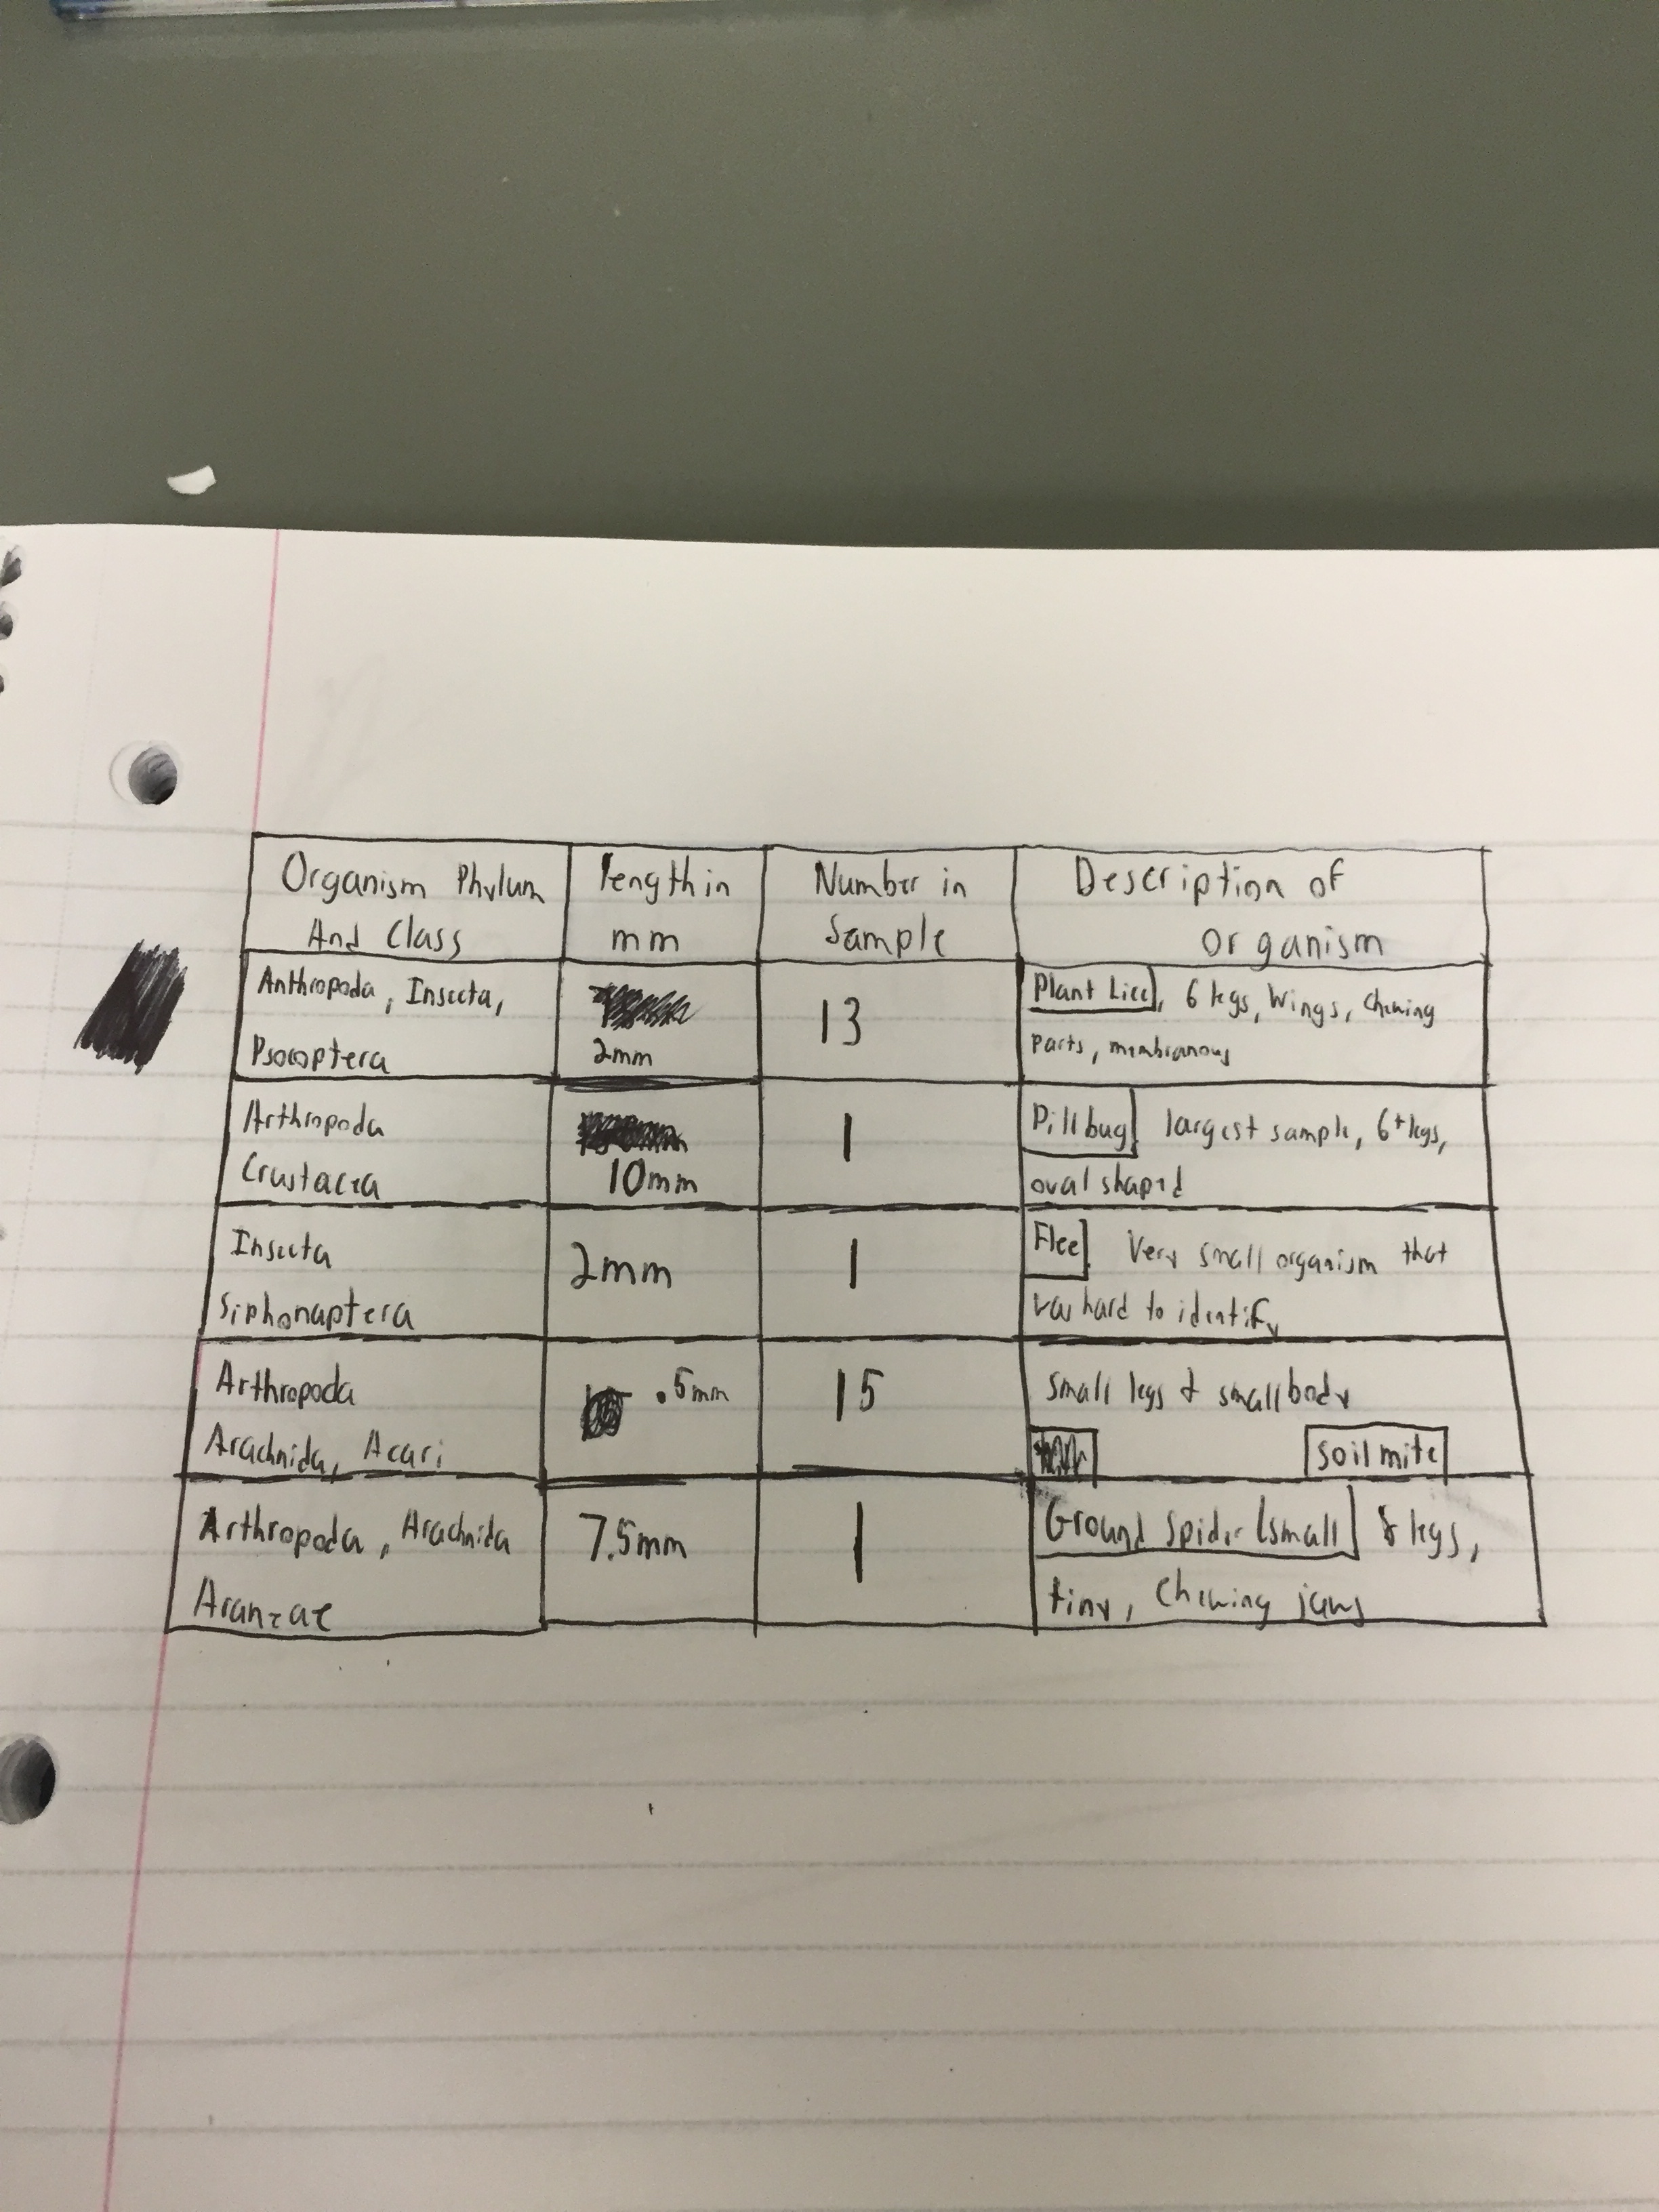 Organism Phylum
And Class
length in
mm
Number in
Sample
Description of
organism
Anthropoda, Insecta,
Psocoptera
2mm
13
Plant Lice, 6 legs, Wings, Chewing
parts, membranous
Arthropoda
Crustacea
10mm
1
Pill bug largest sample, 6+ legs,
oval shaped
Insecta
Siphonaptera
2mm
1
Flee Very small organism that
was hard to identify
Arthropoda
Arachnida, Acari
.5mm
15
Small legs & small body
soil mite
Arthropoda, Arachnida
Araneae
7.5mm
1
Ground Spider (small) 8 legs,
tiny, Chewing jaws